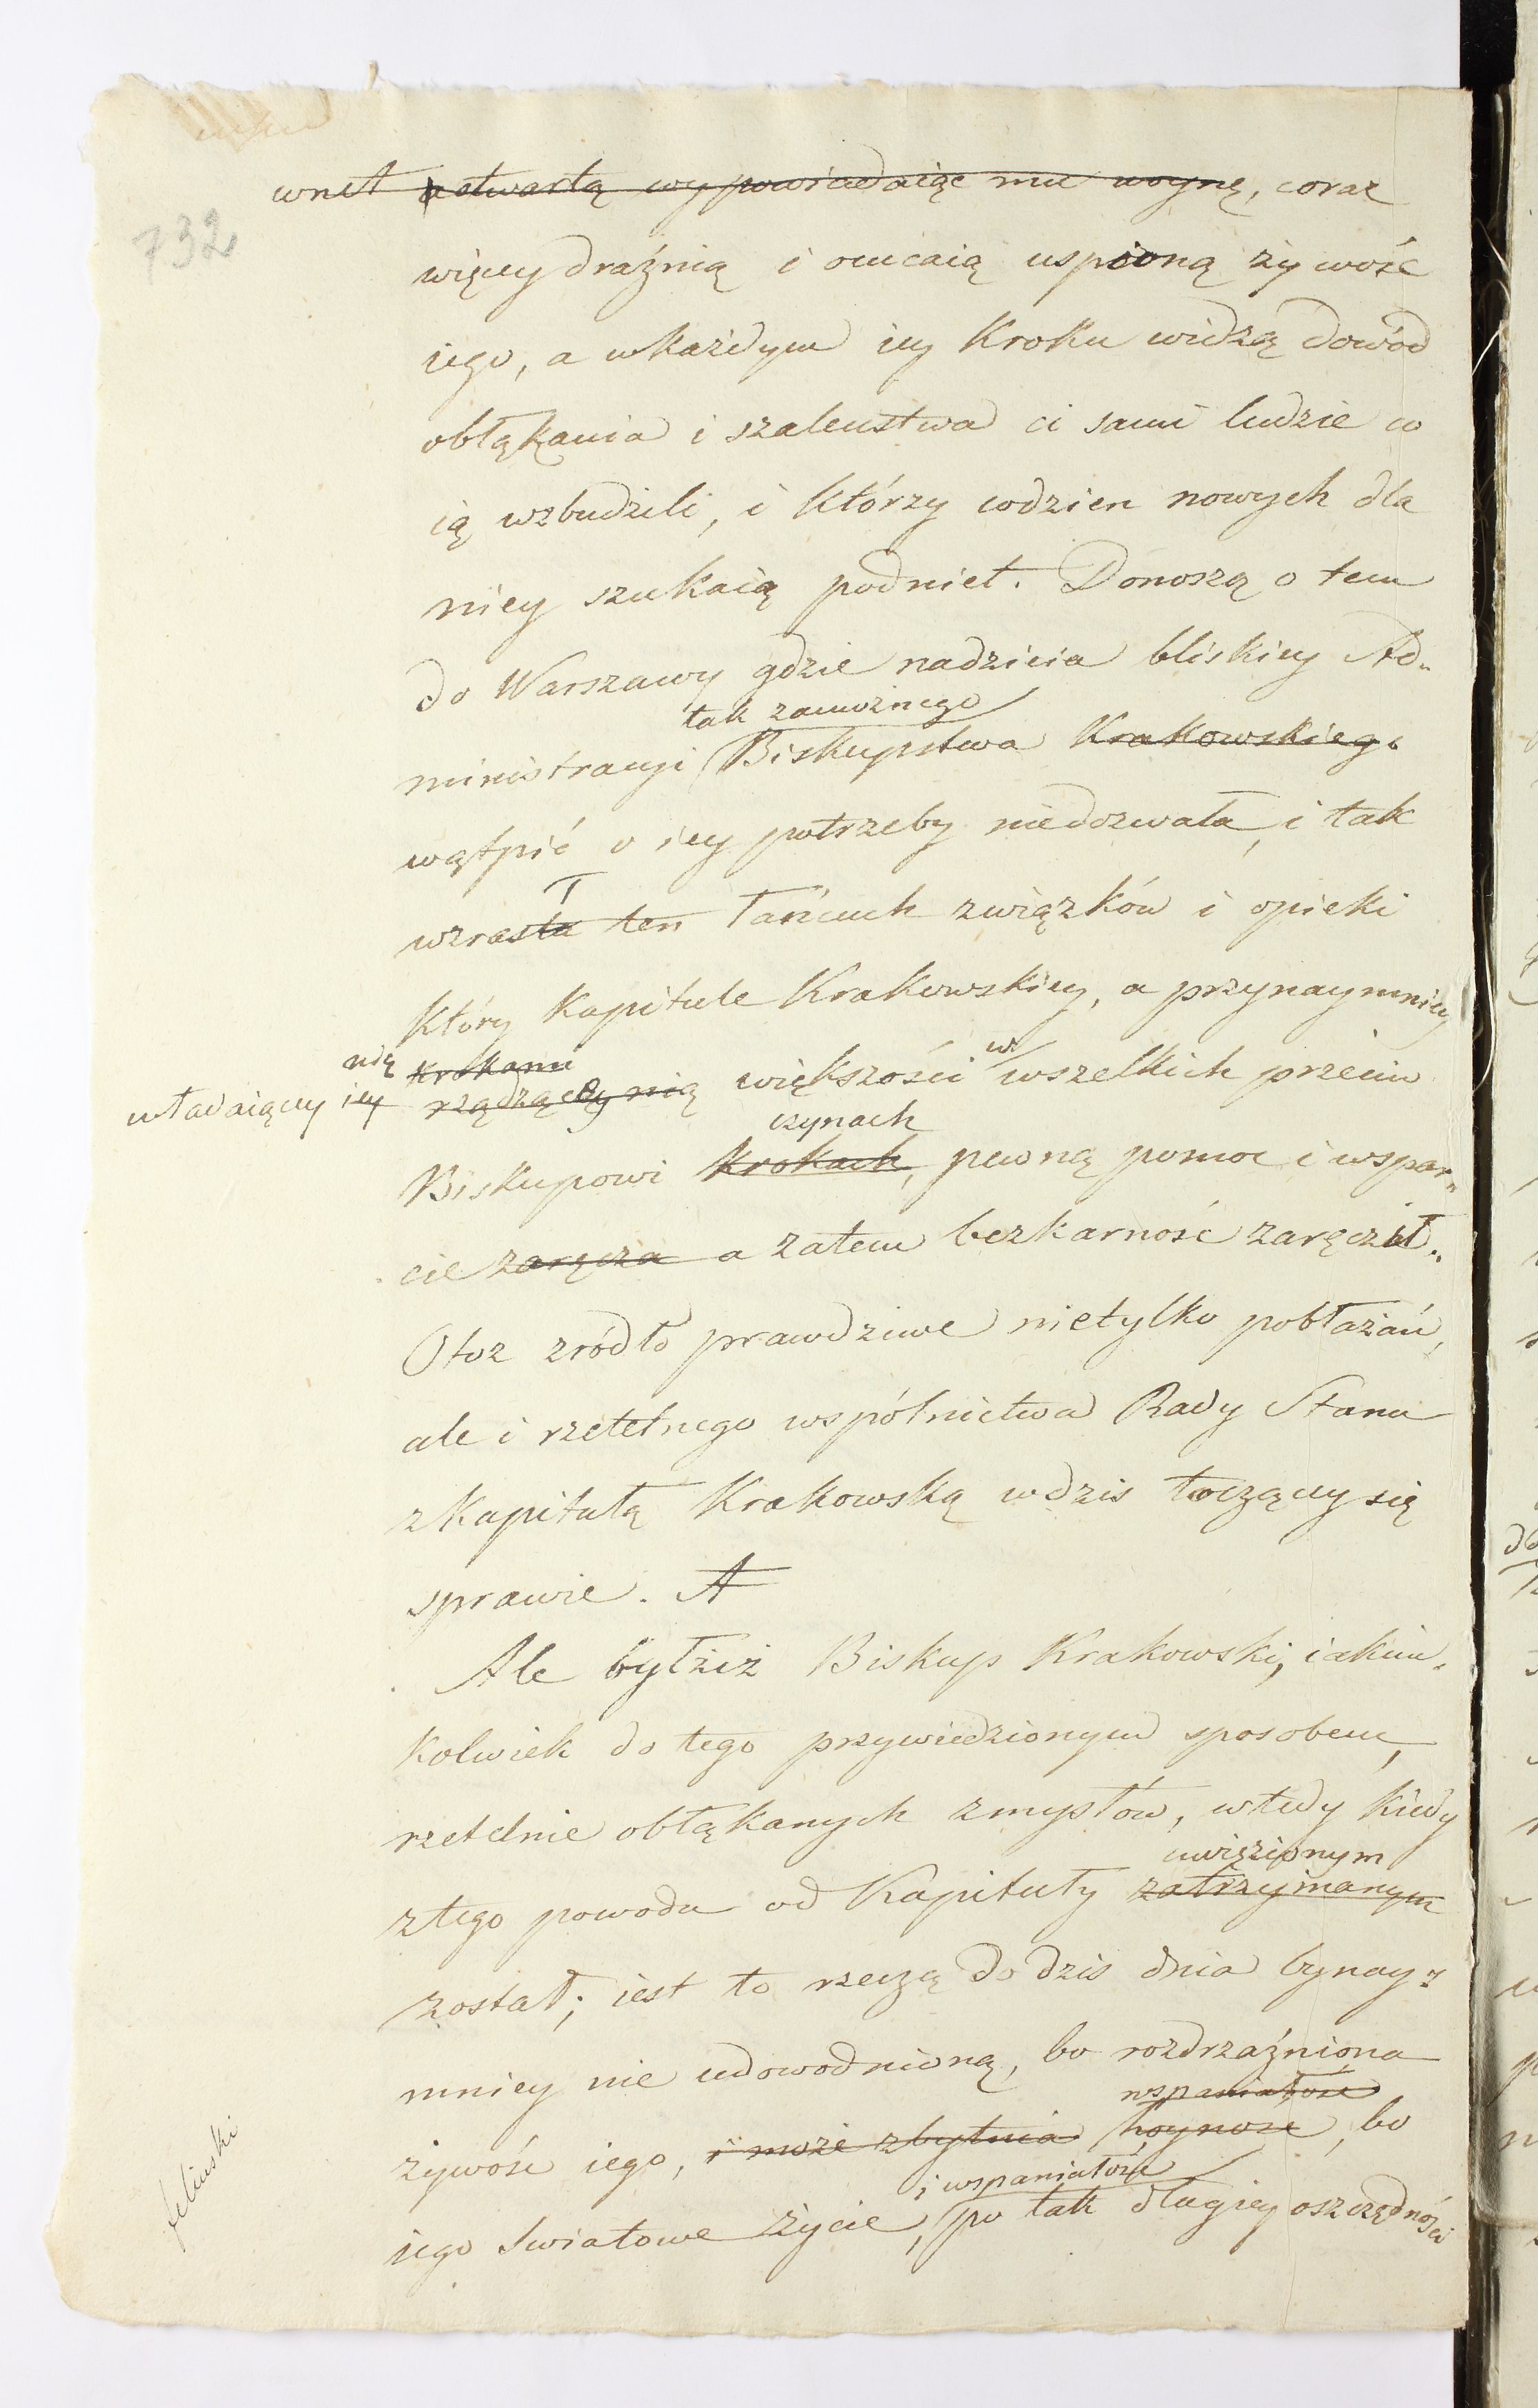 732
wnet otwartą wypowiedaiąc mu woynę, coraz
więcey draźnią i ocucaią uspioną żywość
iego, a w każdym iey kroku widzą dowód
obłąkania i szaleństwa ci sami ludzie co
ią wzbudzili, i którzy codzien nowych dla
niey szukaią podniet. Donoszą o tem
do Warszawy gdzie nadzieia bliskiey Ad„
tak zamożnego
ministracyi Biskupstwa Krakowskiego
wątpić o iey potrzeby niedozwala, i tak
wzrasta ten łańcuch związków i opieki
który Kapitule Krakowskiey, a przynaymniey
nią krokami w
władaiącey iey rządzącey nią większości wszelkich przeciw
czynach
Biskupowi krokach, pewną pomoc i wspar„
cie zaręcza a zatem bezkarność zaręczał.
Otoz zródło prawdziwe nietylko pobłażań,
ale i rzetelnego wspólnictwa Rady Stanu
z Kapitułą Krakowską w dzis toczącey się
sprawie. A
Ale byłżeż Biskup Krakowski, iakim„
kolwiek do tego przywiedzionym sposobem,
rzetelnie obłąkanych zmysłów, wtedy kiedy
uwięzionym
z tego powodu od Kapituły zatrzymanym
został; iest to rzeczą do dzis dnia bynay„
mniey nie udowodnioną, bo rozdrzaźniona
wspaniałość
żywość iego, i może zbytnia hoynosc, bo
i wspaniałość
iego swiatowe życie, po tak długiey oszczędności
feliński